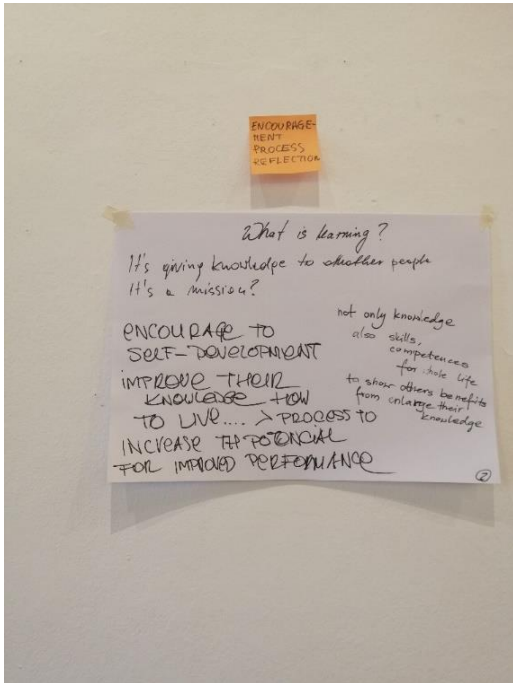 ENCOURAGE-
MENT
PROCESS
REFLECTION
What is learning?
It's giving knowledge to another people
It's a mission?
ENCOURAGE TO
SELF-DEVELOPMENT
IMPROVE THEIR
KNOWLEDGE HOW
TO LIVE.... > PROCESS TO
INCREASE THE POTENCIAL
FOR IMPROVED PERFORMANCE
not only knowledge
also skills,
competences
for hole life
to show others benefits
from enlarge their
knowledge
2